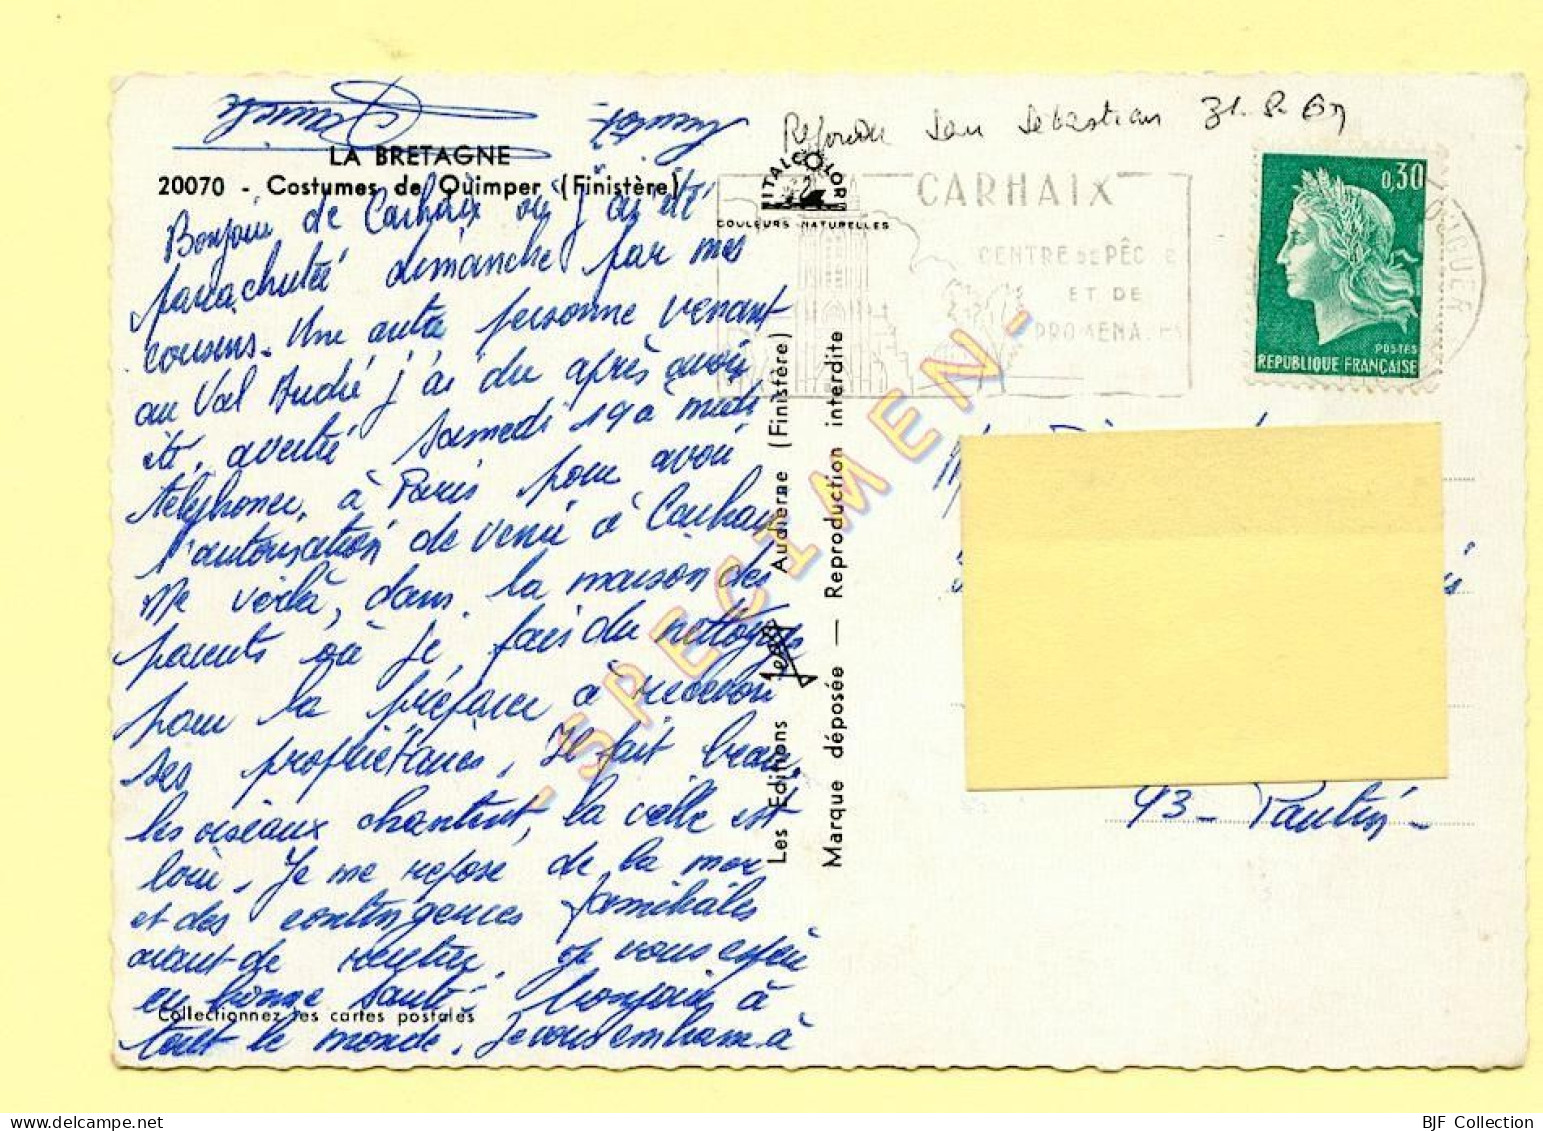 LA BRETAGNE
20070 - Costumes de Quimper (Finistère)
Bonjour de Carhaix où j'ai été
parachutée dimanche par mes
cousins. Une autre personne venant
au Val André j'ai du après avoir
été, avertie samedi 19 à midi
téléphoner, à Paris pour avoir
l'autorisation de venir à Carhaix
Me voilà, dans la maison des
parents où je fais du nettoyage
pour la préparer à recevoir
ses propriétaires. Il fait beau,
les oiseaux chantent, la ville est
loin. Je me repose de la mer
et des contingences familiales
avant de rentrer. Je vous espère
en bonne santé. bonjour à
Collectionnez les cartes postales
tout le monde. Je vous embrasse à
Les Editions Audierne (Finistère)
Marque déposée — Reproduction interdite
ITALCOLOR
COULEURS NATURELLES
San Sebastian
CARHAIX
CENTRE DE PÊCHE
ET DE
PROMENADES
0,30
POSTES
REPUBLIQUE FRANÇAISE
PLOUGUER
93 - Pantin -
- SPECIMEN -
BJF Collection